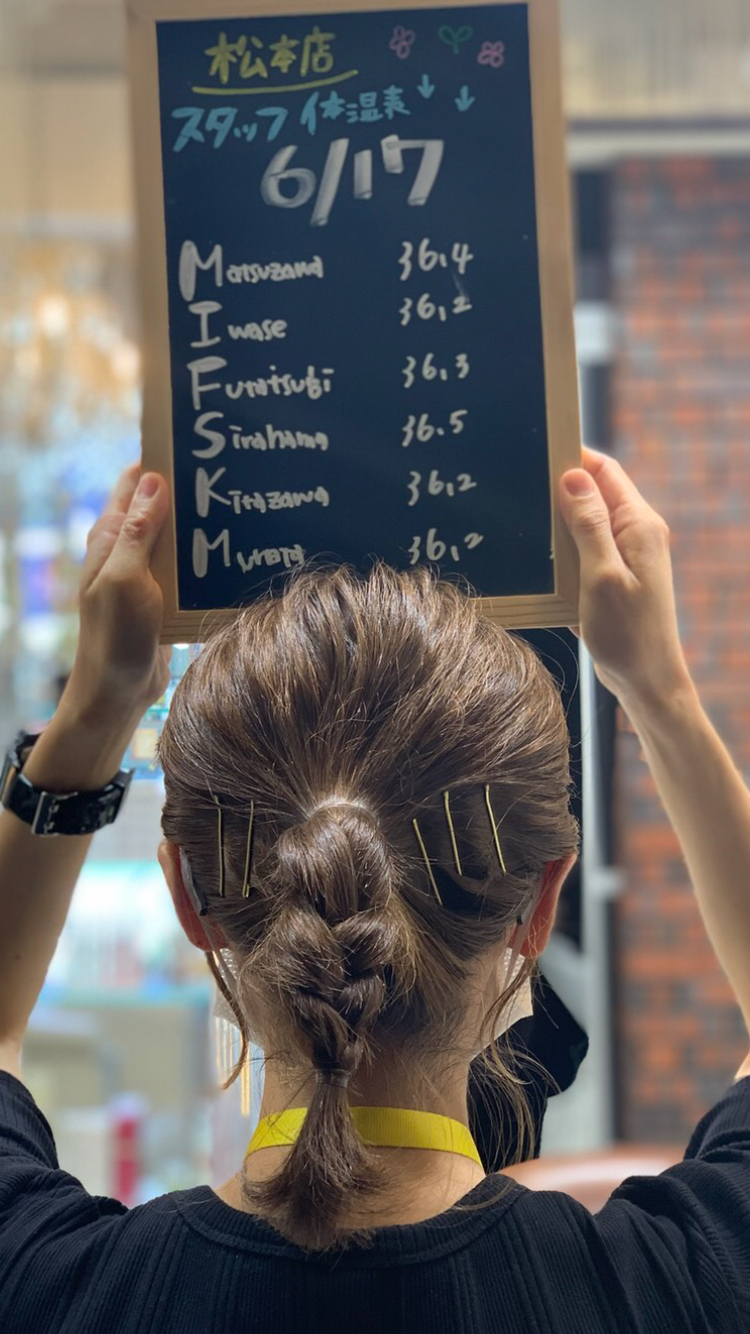 松本店
スタッフ体温表↓↓
6/17
Matsuzawa 36.4
Iwase 36.2
Furatsugi 36.3
Sirahama 36.5
Kitazawa 36.2
Murata 36.2